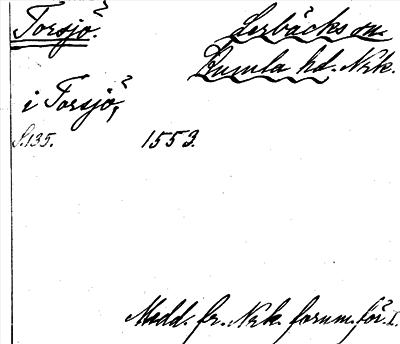 Torsjö?
Lerbäcks sn.
Kumla hd. Nrk.
i Torsjö?,
S. 135. 1553.
Medd. fr. Nrk. fornm. för. I.